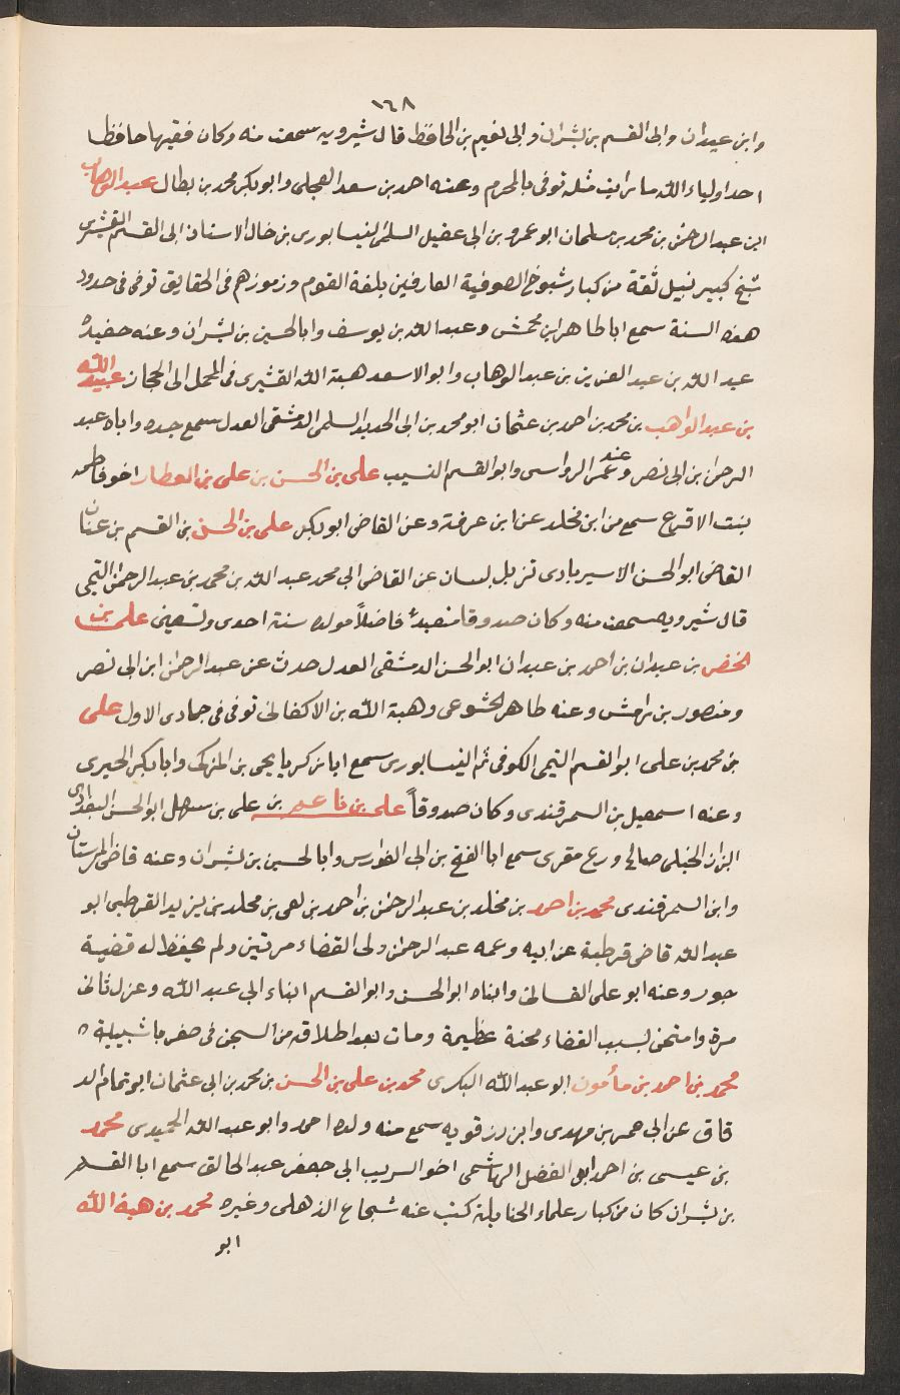 ١٦٨
وابن عبدان وابى القسم بن بشران وابى نعيم بن الحافظ قال شيرويه سمعت منه وكان فقيها حافظا
احد اولياء الله ما رايت مثله توفى بالمحرم وعنه احمد بن سعد العجلى وابو بكر محمد بن بطال عبد الوهاب
ابن عبد الرحمن بن محمد بن سلمان ابو عمرو بن ابى عقيل السلمى النيسابورى بن خال الاستاذ ابى القسم القشيرى
شيخ كبير نبيل ثقة من كبار شيوخ الصوفية العارفين بلغة القوم ورموزهم فى الحقايق توفى فى حدود
هذه السنة سمع ابا طاهر ابن محمش وعبد الله بن يوسف وابا الحسين بن بشران وعنه حفيده
عبد الله بن عبد العزيز بن عبد الوهاب وابو الاسعد هبة الله القشيرى فى المحمل الى الحجاز عبيد الله
بن عبد الواهب بن محمد بن احمد بن عثمان ابو محمد بن ابى الحديد السلمى الدمشقى العدل سمع جده واباه عبد
الرحمن بن ابى نصر وعنه عمر الرواسى وابو القسم النسيب على بن الحسن بن على بن العطار اخو فاطمه
بنت الاقرع سمع من ابن مخلد عن ابن عرفة وعن القاضى ابو بكر على بن الحسن بن القسم بن عنان
القاضى ابو الحسن الاسيربادى نزيل عن القاضى ابى محمد عبد الله بن محمد بن عبد الرحمن التيمى
قال شيرويه سمعت منه وكان صدوقا متعبدا فاضلاً مولده سنة احدى وتسعين على بن
الخضر بن عبدان بن احمد بن عبدان ابو الحسن الدمشقى العدل حدث عن عبد الرحمن ابن ابى نصر
ومنصور بن رامش وعنه طاهر الخشوعى وهبة الله بن الاكفانى توفى فى جمادى الاول على
بن محمد بن على ابو القسم التيمى الكوفى ثم النيسابورى سمع ابا زكريا يحيى بن المزكى وابا بكر الحيرى
وعنه اسمعيل بن السمرقندى وكان صدوقاً على بن ناعم بن على بن سهل ابو الحسن البغدادى
البزاز الحنبلى صالح ورع مقرى سمع ابا الفتح بن ابى الفوارس وابا لحسين بن بشران وعنه قاضى المرستان
وابن السمرقندى محمد بن احمد بن مخلد بن عبد الرحمن بن احمد بن بقى بن مخلد بن يزيد القرطبى ابو
عبد الله قاضى قرطبة عن ابيه وعمه عبد الرحمن ولى القضاء مرتين ولم يحفظ له قضية
جور وعنه ابو على الغسانى وابناه ابو الحسن وابو القسم ابناء ابى عبد الله وعزل ثانى
مرة وامتحن بسبب القضاء محنة عظيمة ومات بعد اطلاقه من السجن فى صفر باشبيلية ٥
محمد بن احمد بن مأمون ابو عبد الله البكرى محمد بن على بن الحسن بن محمد بن ابى عثمان ابو تمام الد
قاق عن ابى عمر بن مهدى وابن رزقويه سمع منه ولده احمد وابو عبد الله الحميدى محمد
بن عيسى بن احمد ابو الفضل الهاشمى اخو السريب ابى جعفر عبد الخالق سمع ابا القسم
بن بشران كان من كبار علماء الحنابلة كتب عنه شجاع الذهلى وغيره محمد بن هبة الله
ابو